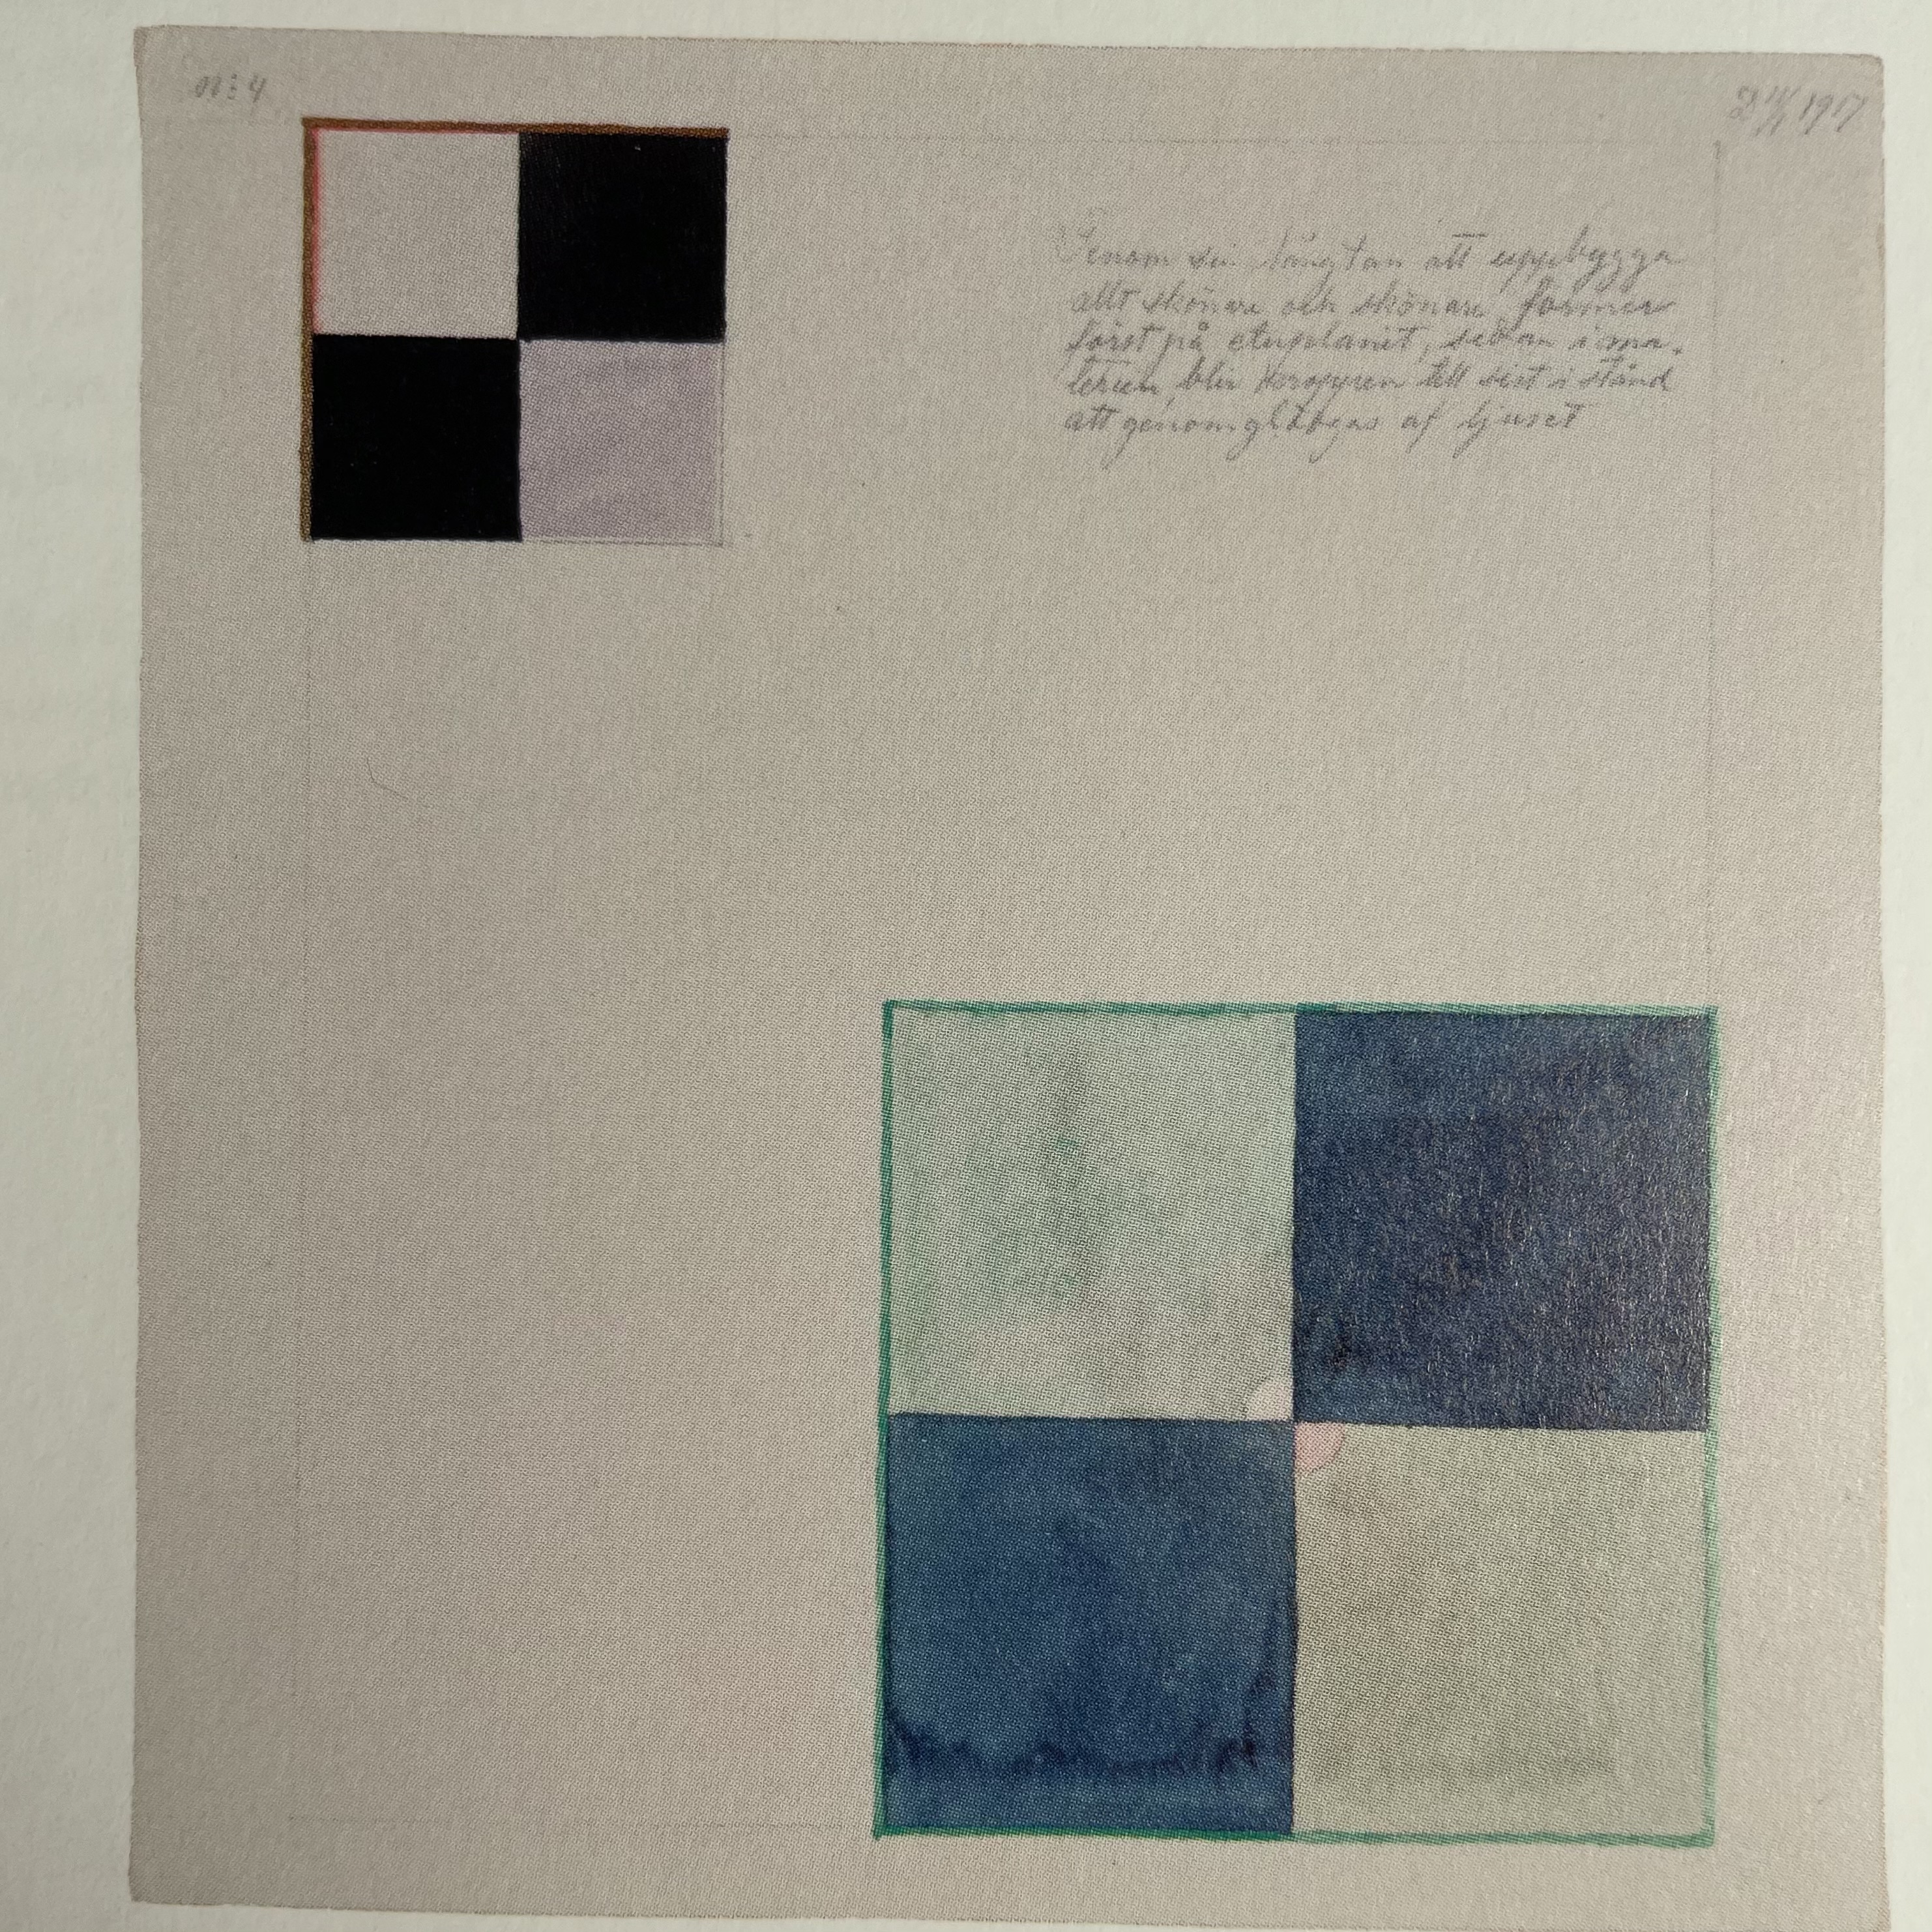 nr: 4
1917
Genom sin längtan att uppbygga
allt skönare och skönare former
först på eterplanet, sedan i ma-
terien, blir kroppen till sist i stånd
att genomglödgas af ljuset